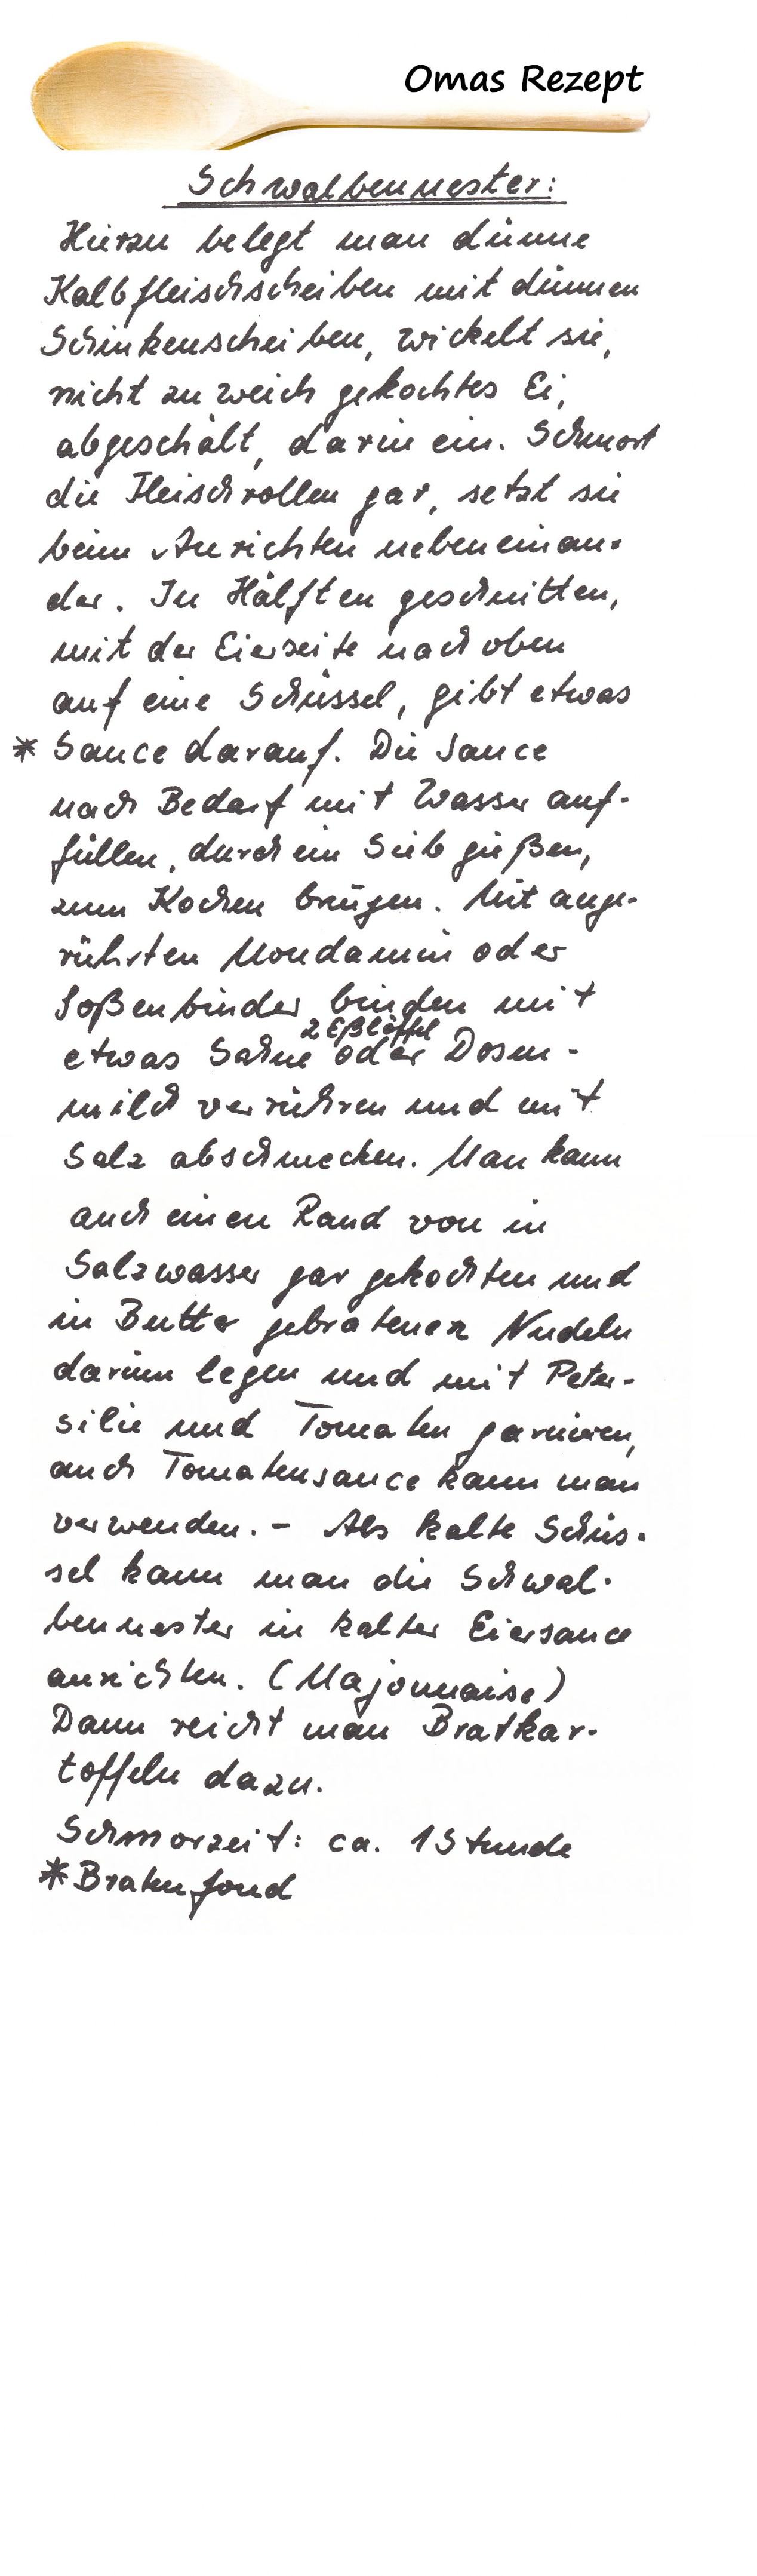 Omas Rezept
Schwalbennester:
Hierzu belegt man dünne
Kalbfleischscheiben mit dünnen
Schinkenscheiben, wickelt sie,
nicht zu weich gekochtes Ei,
abgeschält, darin ein. Schmort
die Fleischrollen gar, setzt sie
beim Anrichten nebeneinan-
der. In Hälften geschnitten,
mit der Eierseite nach oben
auf eine Schüssel, gibt etwas
* Sauce darauf. Die Sauce
nach Bedarf mit Wasser auf-
füllen, durch ein Sieb gießen,
zum Kochen bringen. Mit ange-
rührten Mondamin oder
Soßenbinder binden mit
2 Eßlöffel
etwas Sahne oder Dosen-
milch verrühren und mit
Salz abschmecken. Man kann
auch einen Rand von in
Salzwasser gar gekochten und
in Butter gebratenen Nudeln
darum legen und mit Peter-
silie und Tomaten garnieren,
auch Tomatensauce kann man
verwenden. - Als kalte Schüs-
sel kann man die Schwal-
bennester in kalter Eiersauce
anrichten. (Majonnaise)
Dann reicht man Bratkar-
toffeln dazu.
Schmorzeit: ca. 1 Stunde
* Bratenfond